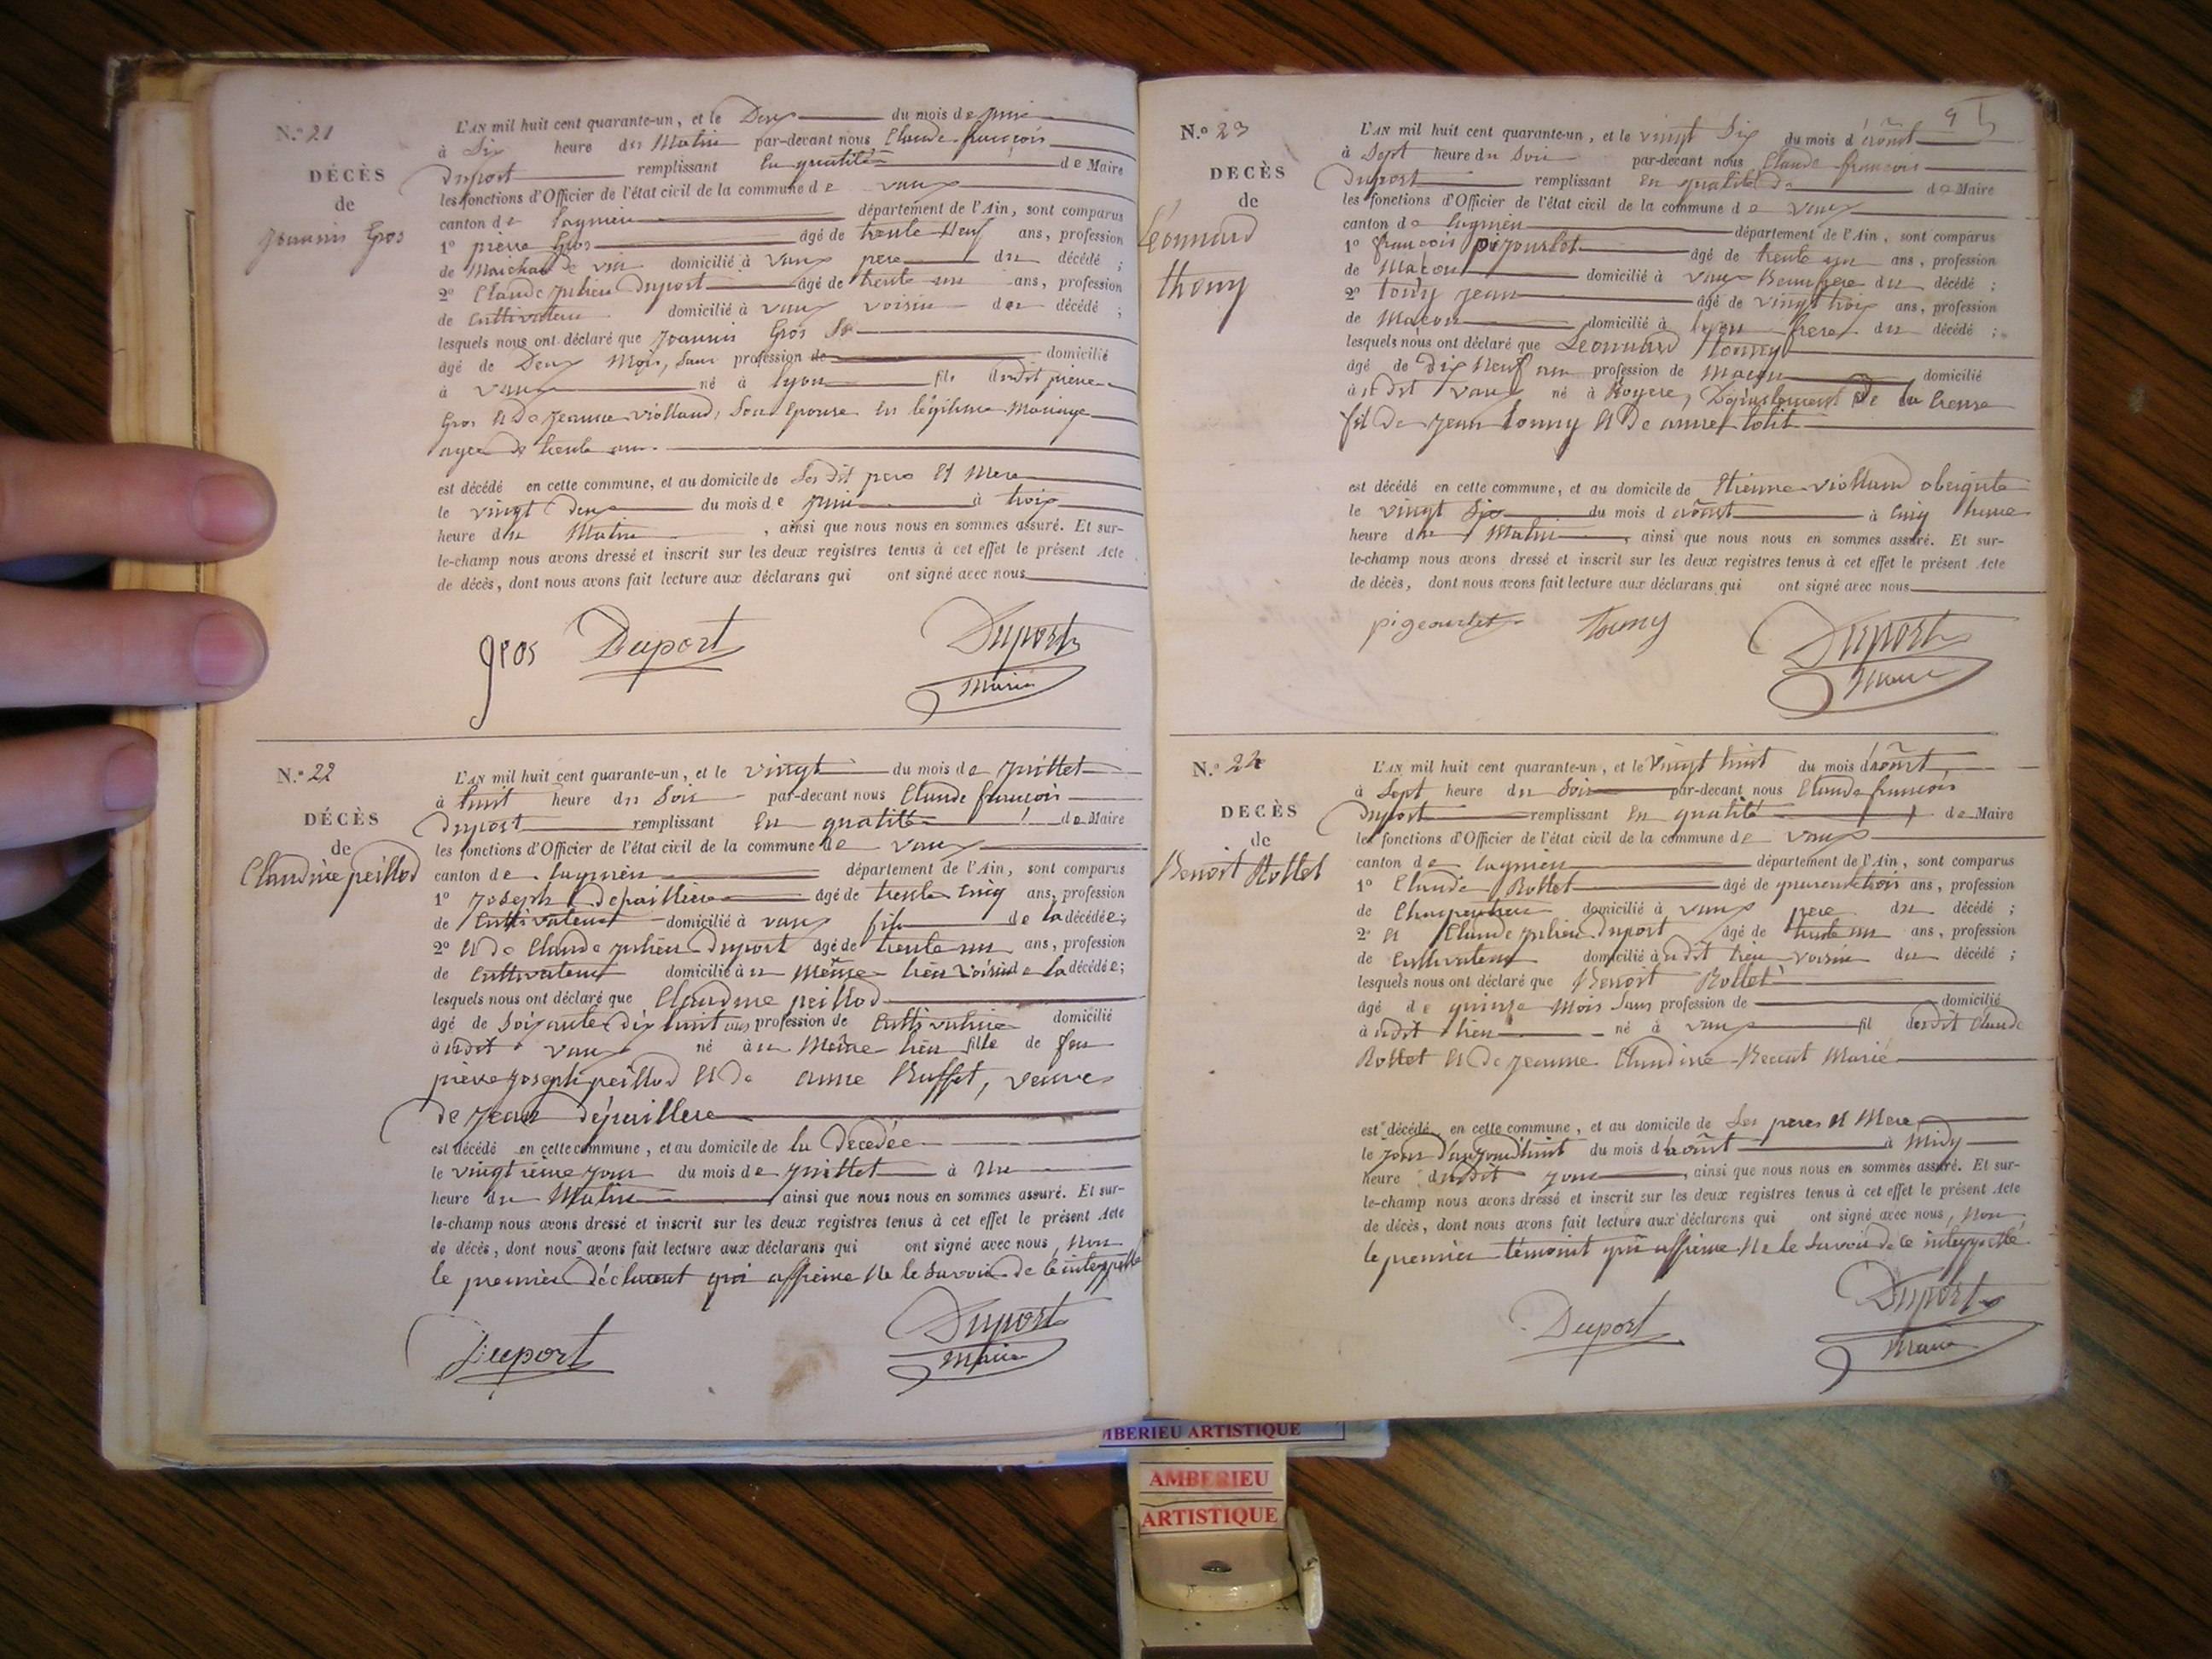 N.º 21
DÉCÈS
de
Joannis Gros
L'AN mil huit cent quarante-un, et le Deux du mois de juin
à Six heure du Matin par-devant nous Claude françois
Duport remplissant En qualité de Maire
les fonctions d'Officier de l'état civil de la commune de vaux
canton de lagnieu département de l'Ain, sont comparus
1º pierre Gros âgé de trente Neuf ans, profession
de Marchand de vin domicilié à vaux pere du décédé ;
2º Claude julien Duport âgé de trente un ans, profession
de Cultivateur domicilié à vaux voisin du décédé ;
lesquels nous ont déclaré que Joannis Gros
âgé de Deux Mois, Sans profession de domicilié
à vaux né à lyon fils dudit pierre
Gros et De jeanne viollaud, Son Epouse en légitime Mariage
agée de trente ans.
est décédé en cette commune, et au domicile de Ses dit pere et Mere
le vingt Deux du mois de juin à trois
heure du Matin, ainsi que nous nous en sommes assuré. Et sur-
le-champ nous avons dressé et inscrit sur les deux registres tenus à cet effet le présent Acte
de décès, dont nous avons fait lecture aux déclarans qui ont signé avec nous
gros Duport Duport
Maire
N.º 22
DÉCÈS
de
Claudine peillod
L'AN mil huit cent quarante-un, et le vingt du mois de juillet
à huit heure du Soir par-devant nous Claude françois
Duport remplissant En qualité de Maire
les fonctions d'Officier de l'état civil de la commune de vaux
canton de lagnieu département de l'Ain, sont comparus
1º joseph Depaillere âgé de trente Cinq ans, profession
de Cultivateur domicilié à vaux fils de la décédée;
2º et de Claude julien Duport âgé de trente un ans, profession
de Cultivateur domicilié au Même lieu voisin de la décédée;
lesquels nous ont déclaré que Claudine peillod
âgé de Soixante Dix huit ans profession de Cultivatrice domicilié
à udit vaux né au Même lieu fille de feu
pierre joseph peillod et De anne Ruffet, veuve
de jean Dépaillere
est décédé en cette commune, et au domicile de la Decedée
le vingtième jour du mois de juillet à Une
heure du Matin ainsi que nous nous en sommes assuré. Et sur-
le-champ nous avons dressé et inscrit sur les deux registres tenus à cet effet le présent Acte
de décès, dont nous avons fait lecture aux déclarans qui ont signé avec nous, Non
le premier Déclarant qui affirme Ne le Savoir de ce interpellé
Duport Duport
Maire
9
N.º 23
DECÈS
de
Léonnard
thony
L'AN mil huit cent quarante-un, et le vingt Six du mois d'août
à Sept heure du Soir par-devant nous Claude françois
Duport remplissant En qualité de de Maire
les fonctions d'Officier de l'état civil de la commune de vaux
canton de lagnieu département de l'Ain, sont comparus
1º françois pijourlet âgé de trente un ans, profession
de Maçon domicilié à vaux Beaufrere du décédé ;
2º tony jean âgé de vingt trois ans, profession
de Maçon domicilié à lyon frere du décédé ;
lesquels nous ont déclaré que Léonnard thonny
âgé de Dix Neuf ans profession de Maçon domicilié
à udit vaux né à Royere, Département De la Creuse
fils De jean tonny et De anne lolit
est décédé en cette commune, et au domicile de Etienne viollaud
le vingt Six du mois d'août à Cinq heure
heure du Matin, ainsi que nous nous en sommes assuré. Et sur-
le-champ nous avons dressé et inscrit sur les deux registres tenus à cet effet le présent Acte
de décès, dont nous avons fait lecture aux déclarans qui ont signé avec nous
pigeourlet touny Duport
Maire
N.º 24
DECÈS
de
Benoit Rollet
L'AN mil huit cent quarante-un, et le vingt huit du mois d'août
à Sept heure du Soir par-devant nous Claude françois
Duport remplissant En qualité de Maire
les fonctions d'Officier de l'état civil de la commune de vaux
canton de lagnieu département de l'Ain, sont comparus
1º Claude Rollet âgé de quarante trois ans, profession
de Charpentier domicilié à vaux pere du décédé ;
2º et Claude julien Duport âgé de trente un ans, profession
de Cultivateur domicilié à udit lieu voisin du décédé ;
lesquels nous ont déclaré que Benoit Rollet
âgé de quinze Mois Sans profession de domicilié
à udit lieu né à vaux fil dudit Claude
Rollet et De jeanne Claudine Marié
est décédé en cette commune, et au domicile de Ses peres et Mere
le jour d'aujourd'huit du mois d'août à Midy
heure dudit jour, ainsi que nous nous en sommes assuré. Et sur-
le-champ nous avons dressé et inscrit sur les deux registres tenus à cet effet le présent Acte
de décès, dont nous avons fait lecture aux déclarans qui ont signé avec nous, Non
le premier témoint qui affirme Ne le Savoir de ce interpellé
Duport Duport
Maire
MBERIEU ARTISTIQUE
AMBERIEU
ARTISTIQUE